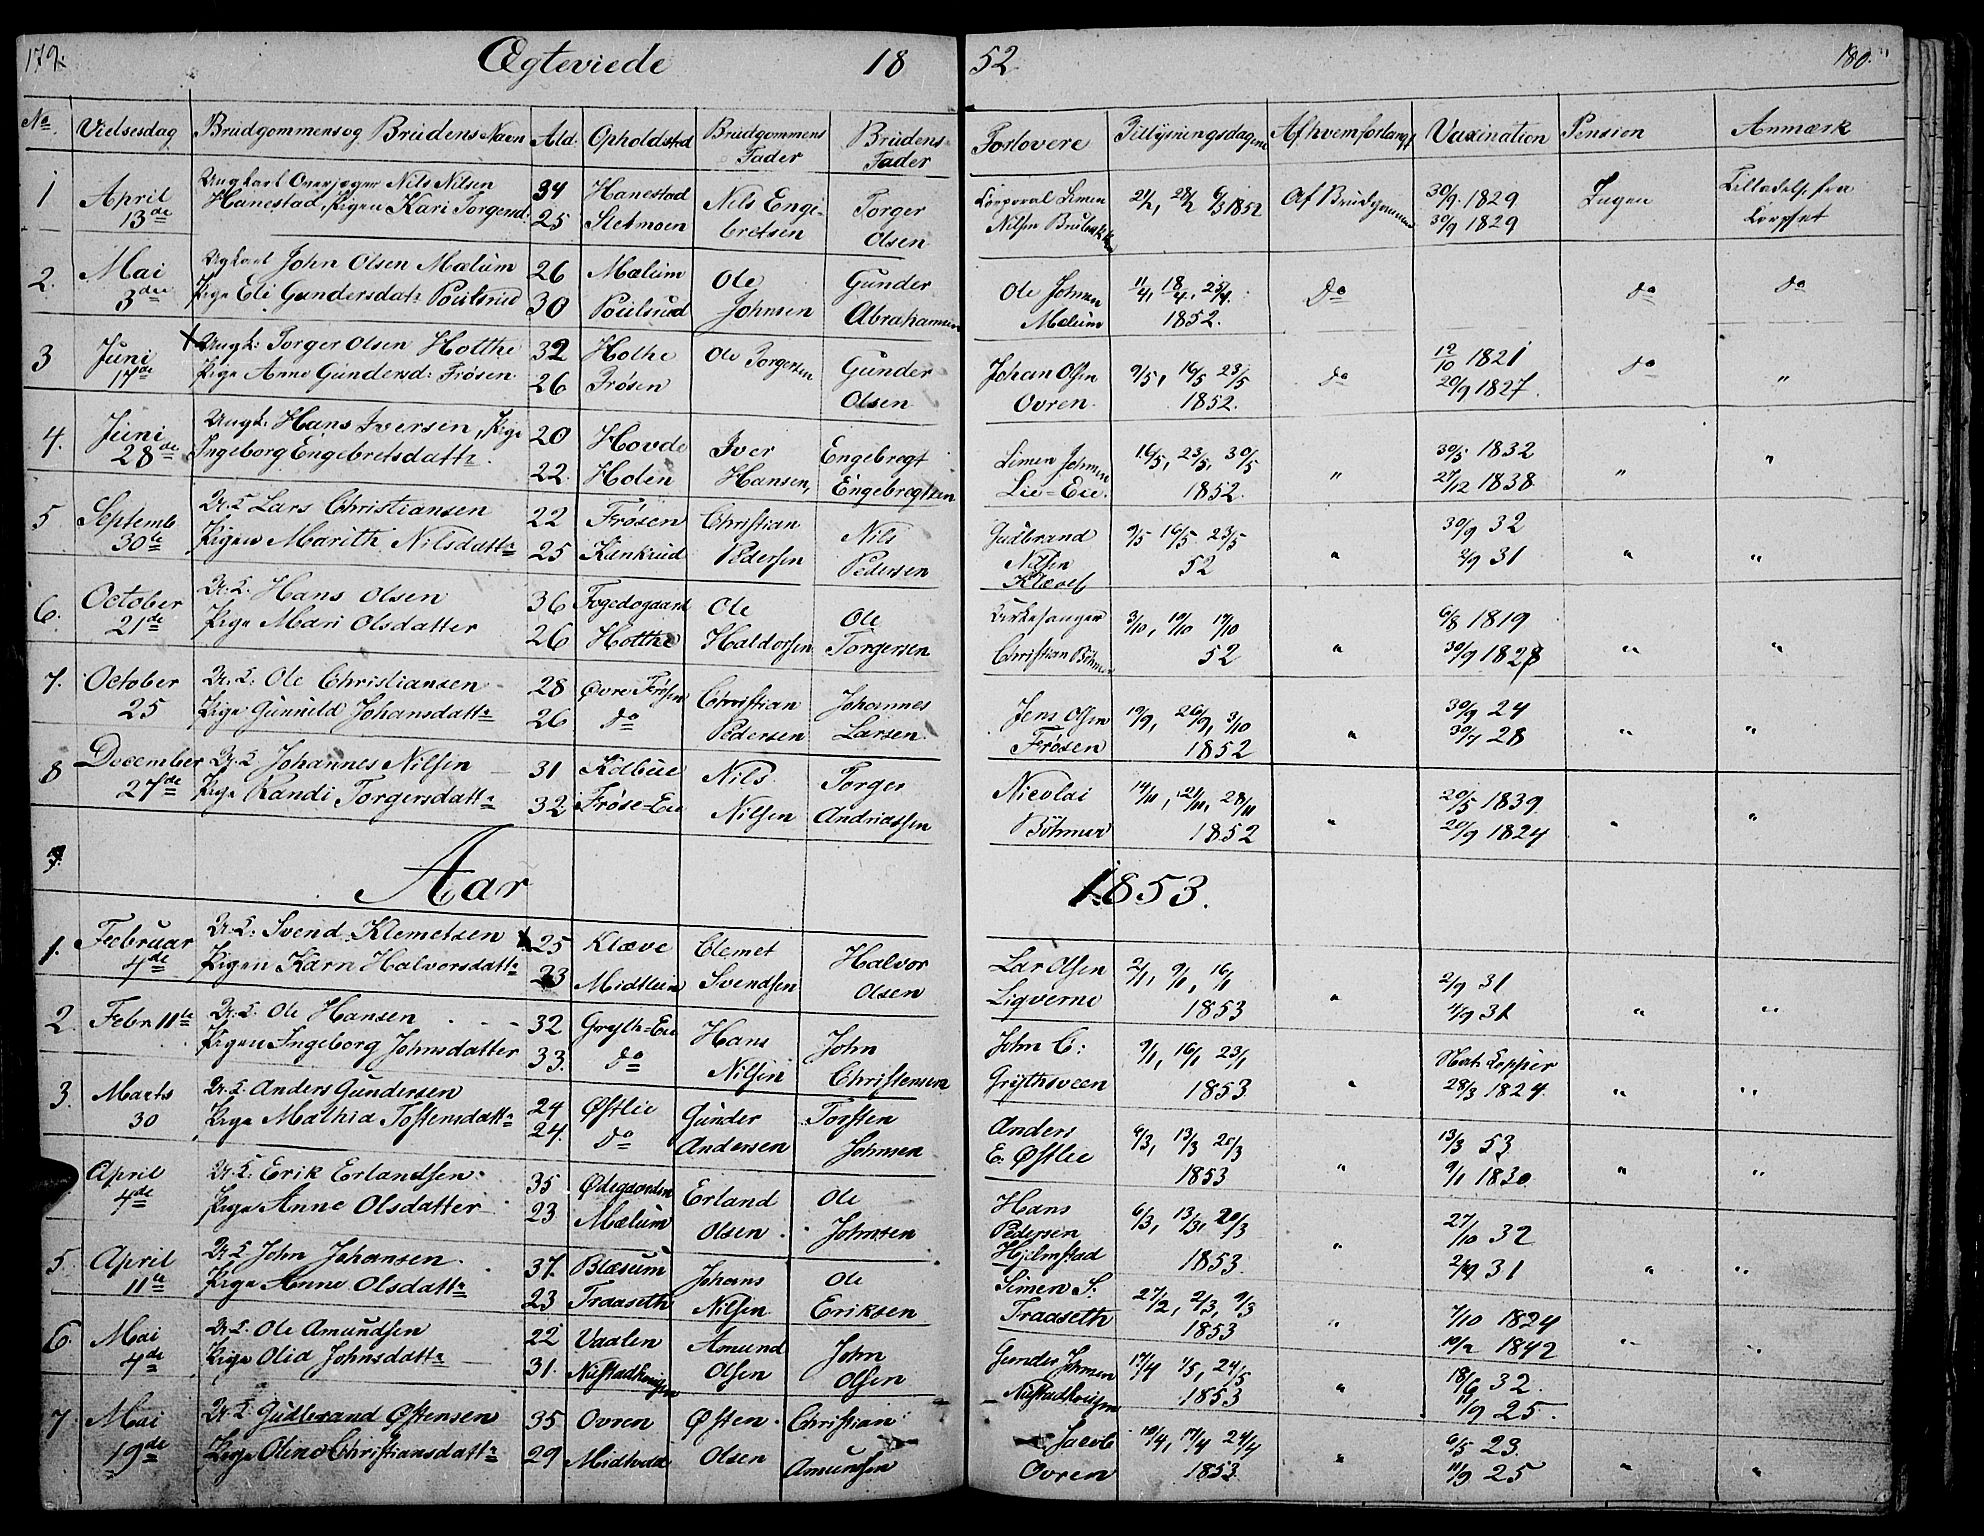 179. Ægteviede 18 52 180.
No. Vielsesdag Brudgommens og Brudens Navn Ald. Opholdsted Brudgommens Fader Brudens Fader Forlovere Tillysningsdagene Af hvem forlangt Vaxination Pension Anmærk
1 April 13de Ungkarl Overjæger Nils Nilsen 34 Hanestad Nils Enge- Torger Corporal Simen 21/2, 28/2 6/3 1852 Af Brudgommen 30/9 1829 Ingen Tilladelse fra
Hanestad, Pigen Kari Torgersd. 25 Sletmoen bretsen Olsen Nilsen 30/9 1829 Corpset
2. Mai 3die Ugkarl John Olsen Mælum 26 Mælum Ole Gunder Ole Johnsen 11/4, 18/4, 25/4. Do Do Do
Pige Eli Gundersdatr Poulsrud 30 Poulsrud Johnsen Abrahamsen Mælum 1852.
3 Juni 17de Ungk: Torger Olsen Holthe 32 Holthe Ole Torgersen Gunder Johan Olsen 9/5, 16/5 23/5 Do 12/10 1821 Do "
Pige Anne Gundersd: Frøsen 26 Frøsen Olsen Ovren 1852. 20/9 1827.
4. Juni 28de Ungk: Hans Iversen, Pige 20 Hovde Iver Engebregt Simen Johnsen 16/5, 23/5, 30/5 " 30/5 1832 " "
Ingeborg Engebretsdattr. 22. Holen Hansen, Engebregtsen Lie=Eie. 1852. 27/12 1838
5 Septemb 30te U. K Lars Christiansen 22 Frøsen Christian Nils Gudbrand 9/5 16/5 23/5 " 30/9 32 " "
Pigen Marith Nilsdattr 25 Kankrud Pedersen Pedersen Nilsen 52 2/9 31
Klæve
6. October 21de U. K. Hans Olsen 36 Fogedogaard Ole Ole Kirkesanger 3/10, 10/10 17/10 " 6/8 1819 " "
Pige Mari Olsdatter 26 Holthe Haldorsen Torgersen Christian Bøhmer 52 30/9 1828
7. October 25 U. K. Ole Christiansen 28 Øvre Frøsen Christian Johannes Jens Olsen 19/9, 26/9, 3/10 " 30/9 24 " "
Pige Gunnild Johansdattr 26 Do Pedersen Larsen Frøsen 1852 30/7 28
8 December 27de U. K Johannes Nilsen 31 Kolbue Nils Torger Nicolai 14/11, 21/11, 28/11 " 20/5 1839 " "
Pige Randi Torgersdattr 32. Frøse=Eie Nilsen Andriassen Bøhmer 1852 20/9 1824
Aar 1853.
1. Februar 4de U. K: Svend Klemetsen 25 Klæve Clemet Halvor Lar Olsen 2/1, 9/1, 16/1 " 2/9 31 " "
Pigen Karn Halvorsdattr 23 Midtlien Svendsen Olsen Ligverne 1853 4/9 31
2. Febr. 11te U. K. Ole Hansen 32 Gryth=Eie Hans John John C: 9/1, 16/1 23/1 " Hat Kopper " "
Pigen Ingeborg Johnsdatter 33. Do Nilsen Christensen Grythsveen 1853 28/3 1824.
3. Marts 30 U. K. Anders Gundersen 24 Østlie Gunder Torsten Anders 6/3, 13/3 20/3 " 13/3 53 " "
Pige Mathia Tostensdattr 24. Do Andersen Johnsen E. Østlie 1853 9/1 1830
April 4de U. K: Erik Erlandsen 35 Ødegaarden Erland Ole Hans 6/3, 13/3, 20/3 " 27/10 32
Pige Anne Olsdatter 23 Mælum Olsen. Johnsen Pedersen 1853. 2/9 31 " "
Hjelmstad
5. April 11te U. K John Johansen. 37. Blæsum Johans Ole Simen S. 27/2, 2/3, 9/3 " 7/10 1824 " "
Pige Anne Olsdattr 23 Traaseth Nilsen Eriksen Traaseth 1853 1842
6. Mai 4de U. K. Ole Amundsen 22 Vaalen Amund John Gunder Johnsen 17/4 1/5, 24/5 " 18/9 32.
Pige Olia Johnsdattr 31. Olsen Olsen 1853 11/9 25.
7 Mai 19de U. K Gudbrand Østensen 35 Ovren Østen Christian Jacob 10/4, 17/4 24/4 " 6/5 23 " "
Pige Oline Christiansdattr 29 Midtvold Olsen Amundsen Ovren 1853. 11/9 25